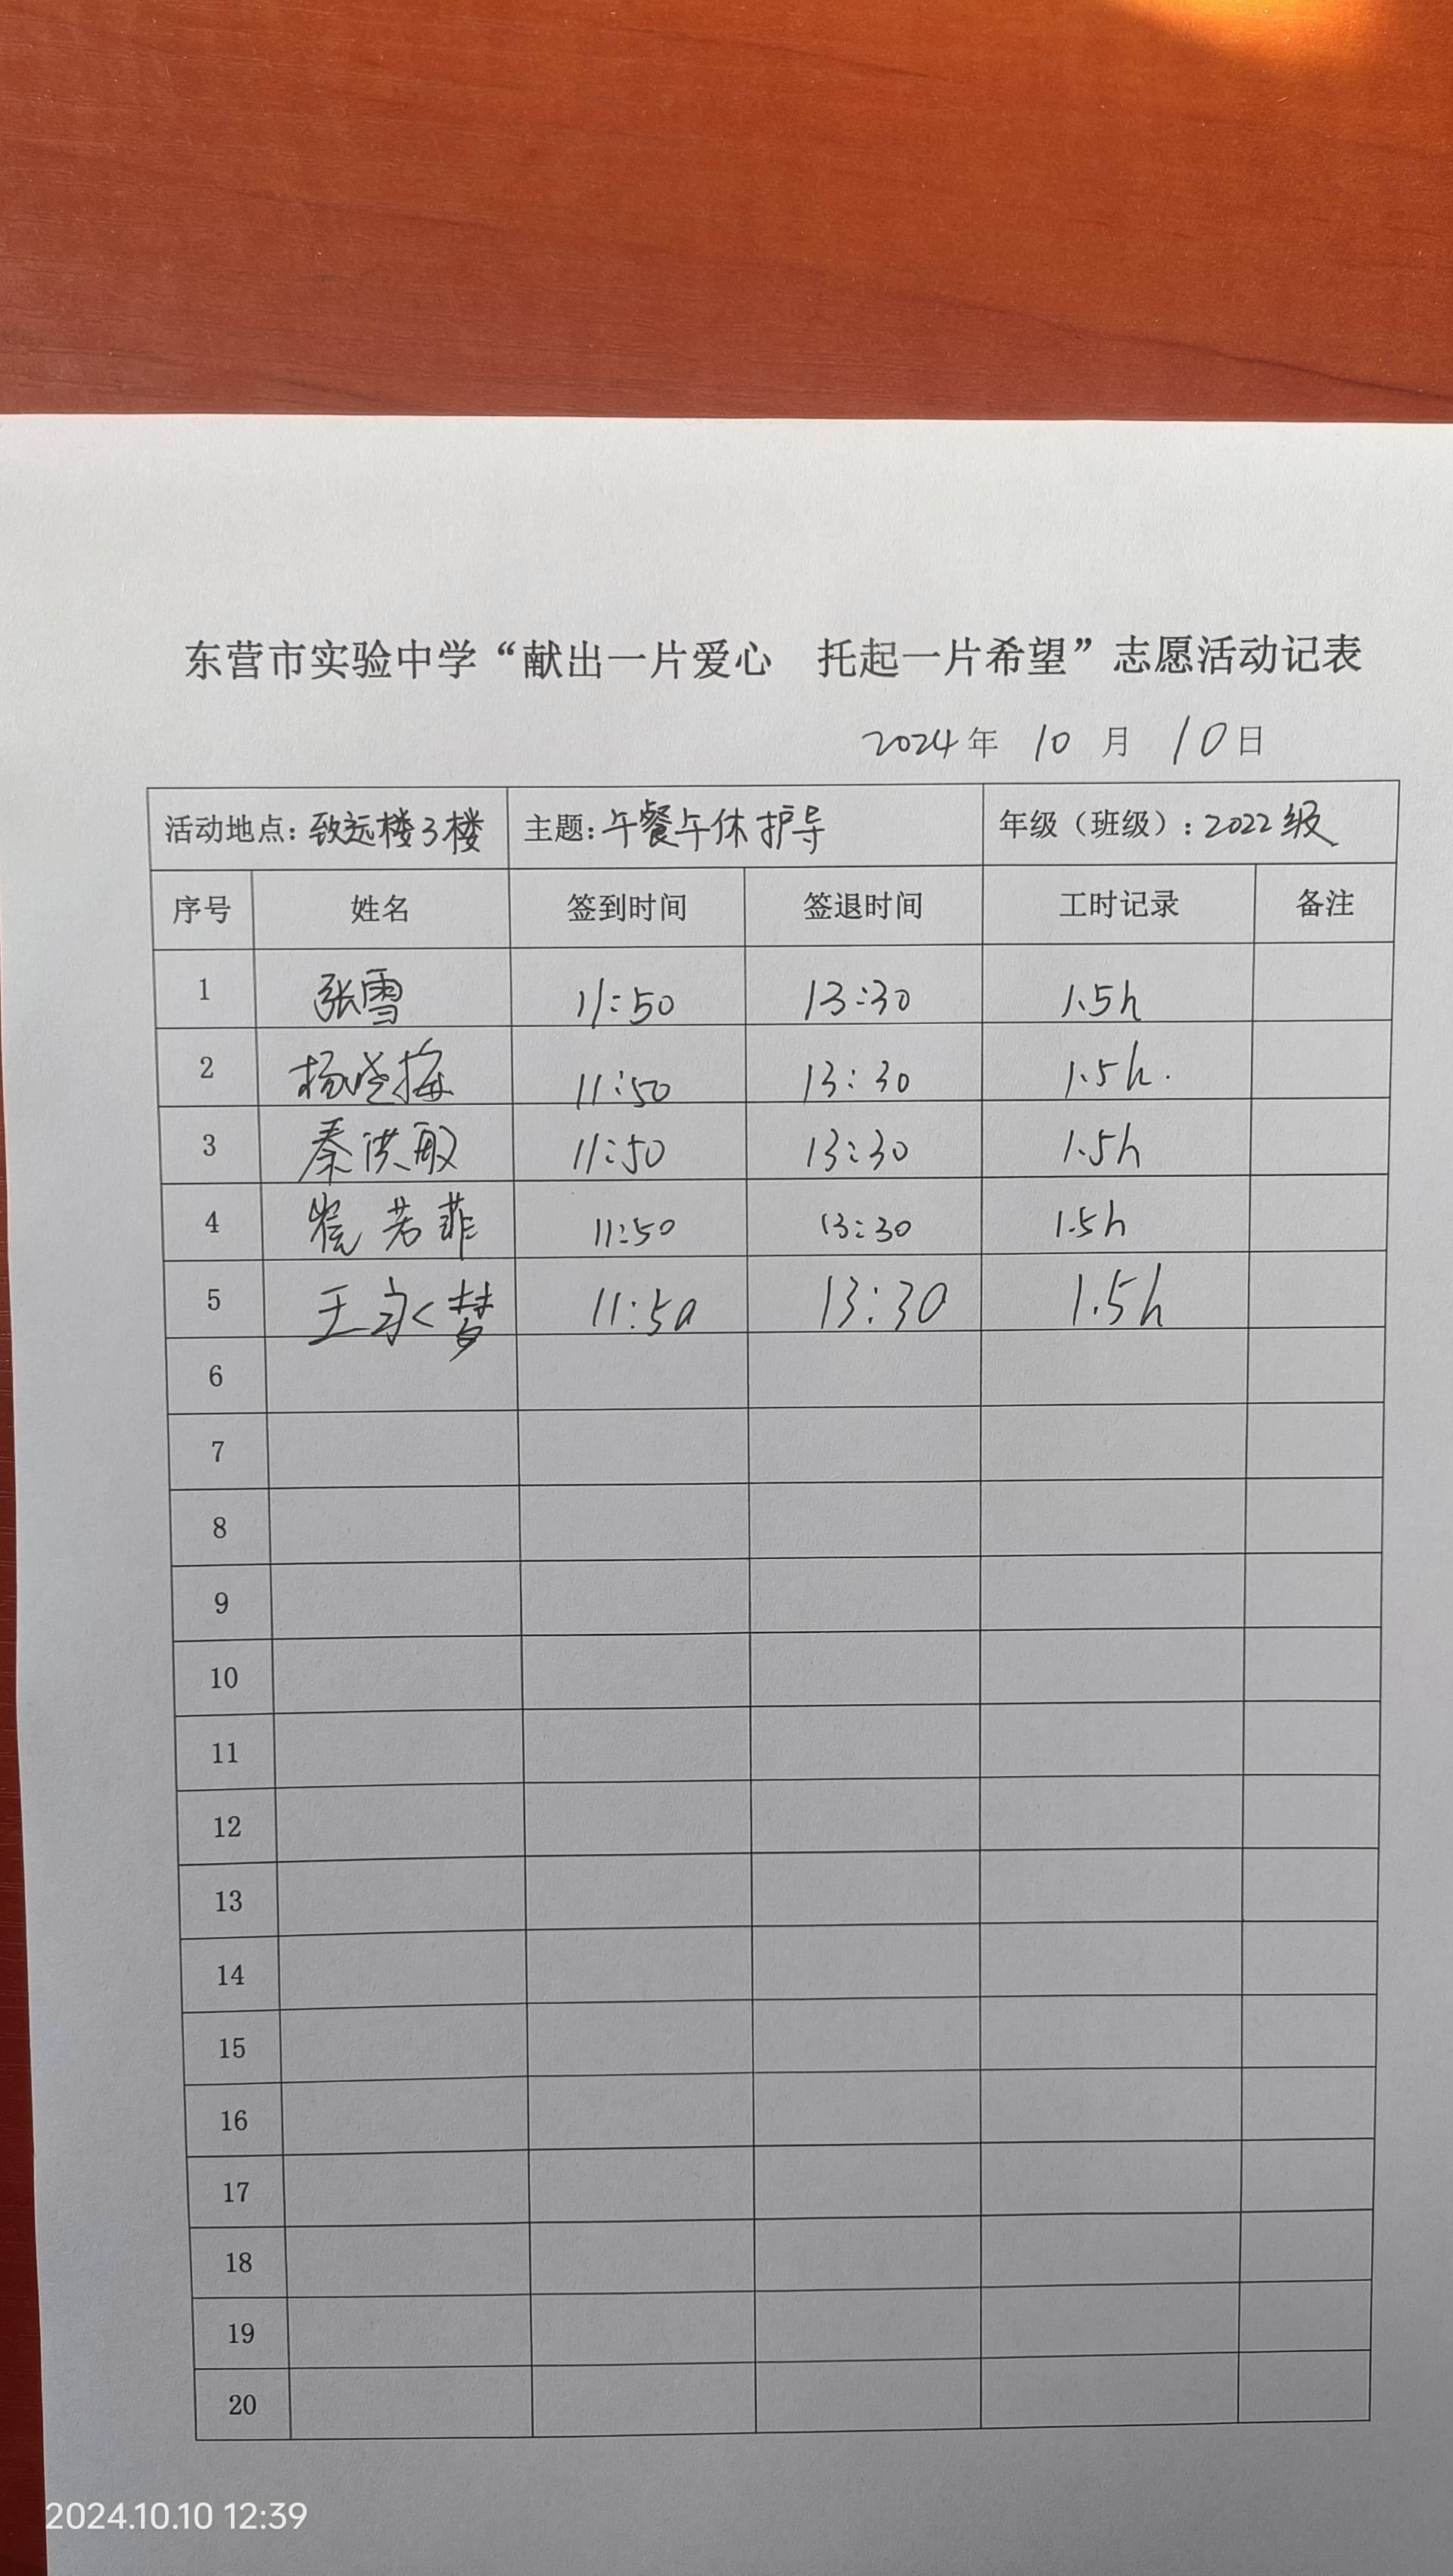 东营市实验中学“献出一片爱心 托起一片希望”志愿活动记表
2024年 10 月 10日
活动地点：致远楼3楼 主题：午餐午休护导 年级（班级）：2022级
序号 姓名 签到时间 签退时间 工时记录 备注
1 张雪 11:50 13:30 1.5h
2 杨晓梅 11:50 13:30 1.5h.
3 秦洪 11:50 13:30 1.5h
4 崔若菲 11:50 13:30 1.5h
5 王永梦 11:50 13:30 1.5h
6
7
8
9
10
11
12
13
14
15
16
17
18
19
20
2024.10.10 12:39